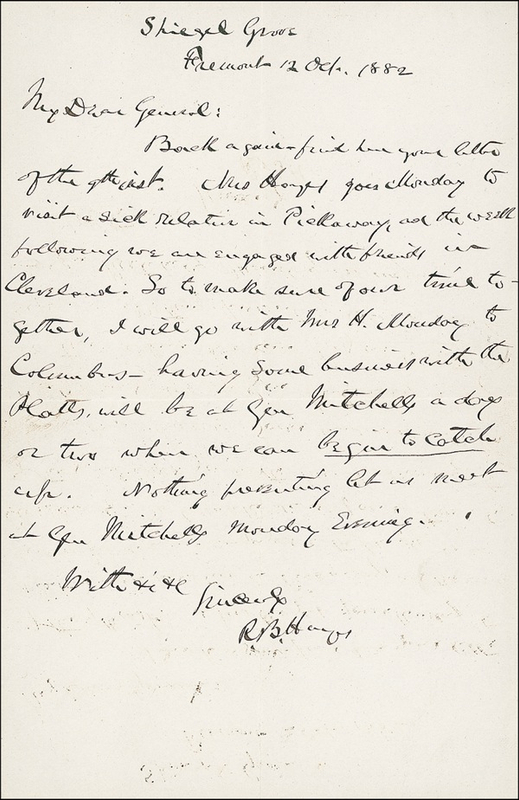 Spiegel Grove
Fremont 12 Oct. 1882
My Dear General:
Back again - find here your letter
of the 9th inst. Mrs Hayes goes Monday to
visit a sick relative in Pickaway, and the week
following we are engaged with friends in
Cleveland. So to make sure of our time to-
gether, I will go with Mrs H. Monday to
Columbus - having some business with the
Platts, will be at Gen Mitchells a day
or two when we can begin to catch
up. Nothing preventing let us meet
at Gen Mitchells Monday Evening.
With
Sincerely
R.B. Hayes